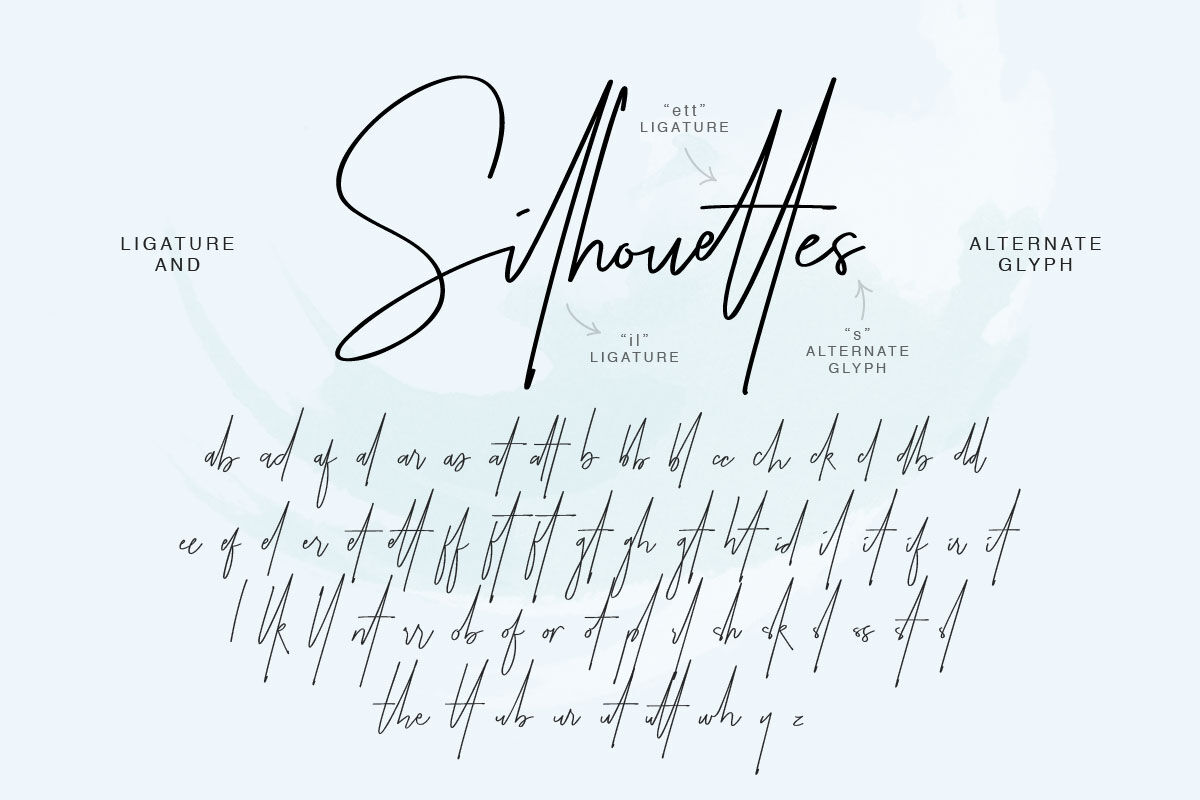 Silhouettes
“ett”
LIGATURE
LIGATURE
AND
ALTERNATE
GLYPH
“il”
LIGATURE
“s”
ALTERNATE
GLYPH
ab ad af al ar as at att b bb bl cc ch ck cl db dd
ee ef el er et ett ff ft ft gt gh gt ht id il it if ir it
l lk ll nt rr ob of or ot pl rl sh sk sl ss st sl
the tt ub ur ut utt wh y z